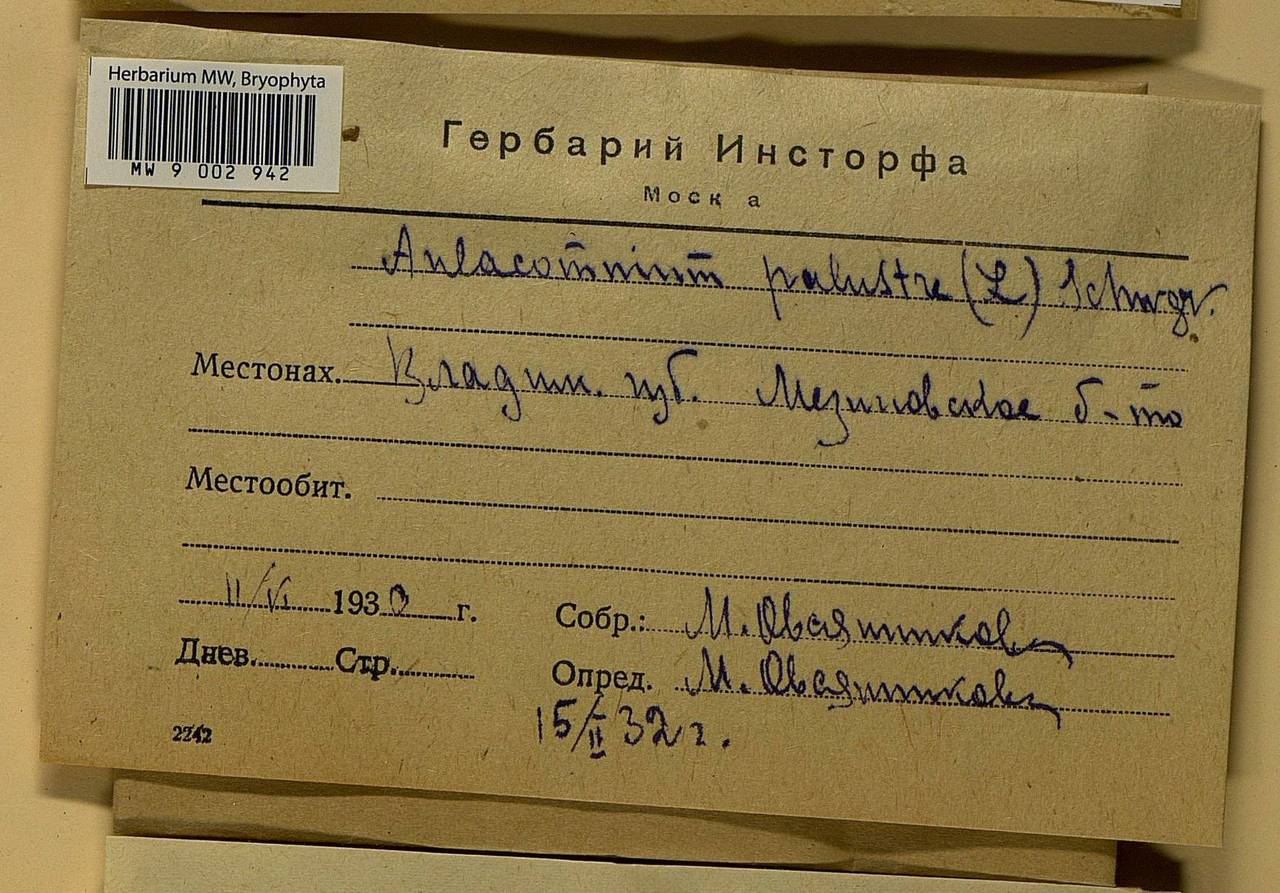 Herbarium MW, Bryophyta
MW 9 002 942
Гербарий Инсторфа
Моск а
Aulacomnium palustre (L) Schwgr.
Местонах. Владим. губ. Мезиновское б-то
Местообит.
11/VI 1930 г.
Собр.: М. Овсянникова
Днев. Стр.
Опред. М. Овсянникова
15/II 32 г.
2242